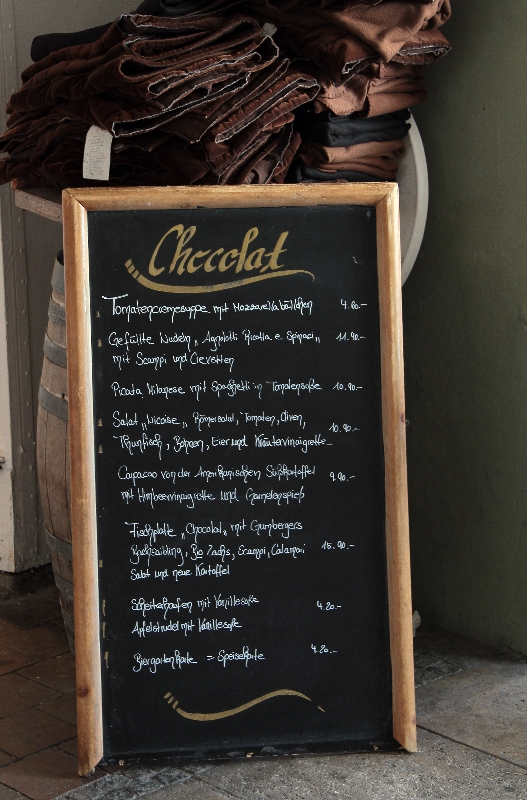 Chocolat
Tomatencremesuppe mit Mozzarellabällchen 4.60.-
Gefüllte Nudeln „Agnolotti Ricotta e. Spinaci„ 11.90.-
mit Scampi und Crevetten
Picata Milanese mit Spaghetti in Tomatensoße 10.90.-
Salat „Nicoise„ Römersalat, Tomaten, Oliven,
Thunfisch, Bohnen, Eier und Kräutervinaigrette 10.90.-
Carpacao von der Amerikanischen Süßkartoffel 9.90.-
mit Himbeervinaigrette und Garnelenspieß
Fischplatte „Chocolat„ mit Grumbergers
Bachsaibling, Scampi, Calamari 15.90.-
Salat und neue Kartoffel
Scheiterhaufen mit Vanillesoße 4.20.-
Apfelstrudel mit Vanillesoße
Biergartenkarte = Speisekarte 4.20.-